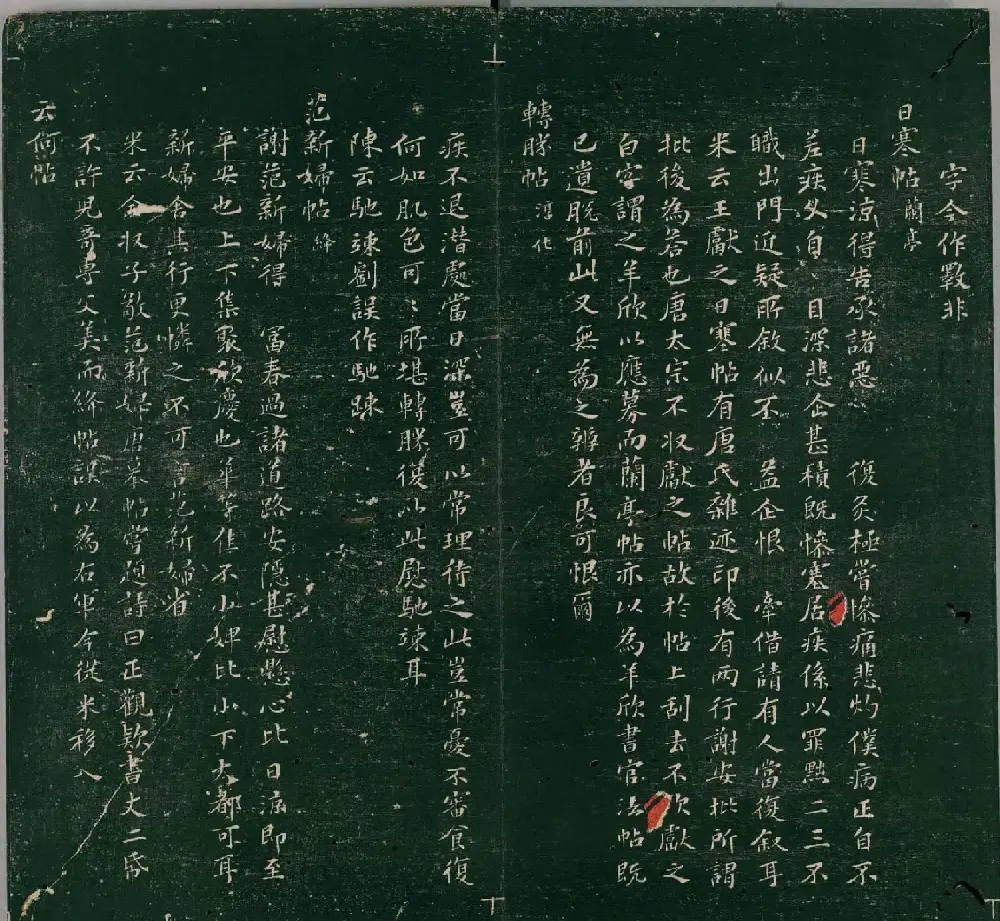 字今作斆非
日寒帖 蘭亭
日寒涼得告承諸惡 復灸極嘗慘痛悲灼僕病正自不
差疾久自〻目深悲企甚積既慘寒居疾係以罪黜二三不
職出門近疑所敘似不 益企恨 牽借請有人當復敘耳
米云王獻之日寒帖有唐氏雜迹印後有兩行謝安批所謂
批後為荅也唐太宗不収獻之帖故於帖上刮去不次獻之
白字謂之羊欣以應募而蘭亭帖亦以為羊欣書官法帖既
已遺脫前此又無為之辨者良可恨爾
轉勝帖 淳化
疾不退潛處當日深豈可以常理待之此豈常憂不審食復
何如肌色可〻所堪轉勝復以此慰馳竦耳
陳云馳竦劉誤作馳踈
范新婦帖 絳
謝范新婦得 富春過諸道路安隱甚慰懸心比日涼即至
平安也上下集聚欣慶也 等佳不小婢比小下大都可耳
新婦舍其行更憐之不可言范新婦省
米云余収子敬范新婦唐摹帖嘗題詩曰正觀欵書丈二昏
不許見奇專父美而絳帖誤以為右軍今從米移入
云何帖